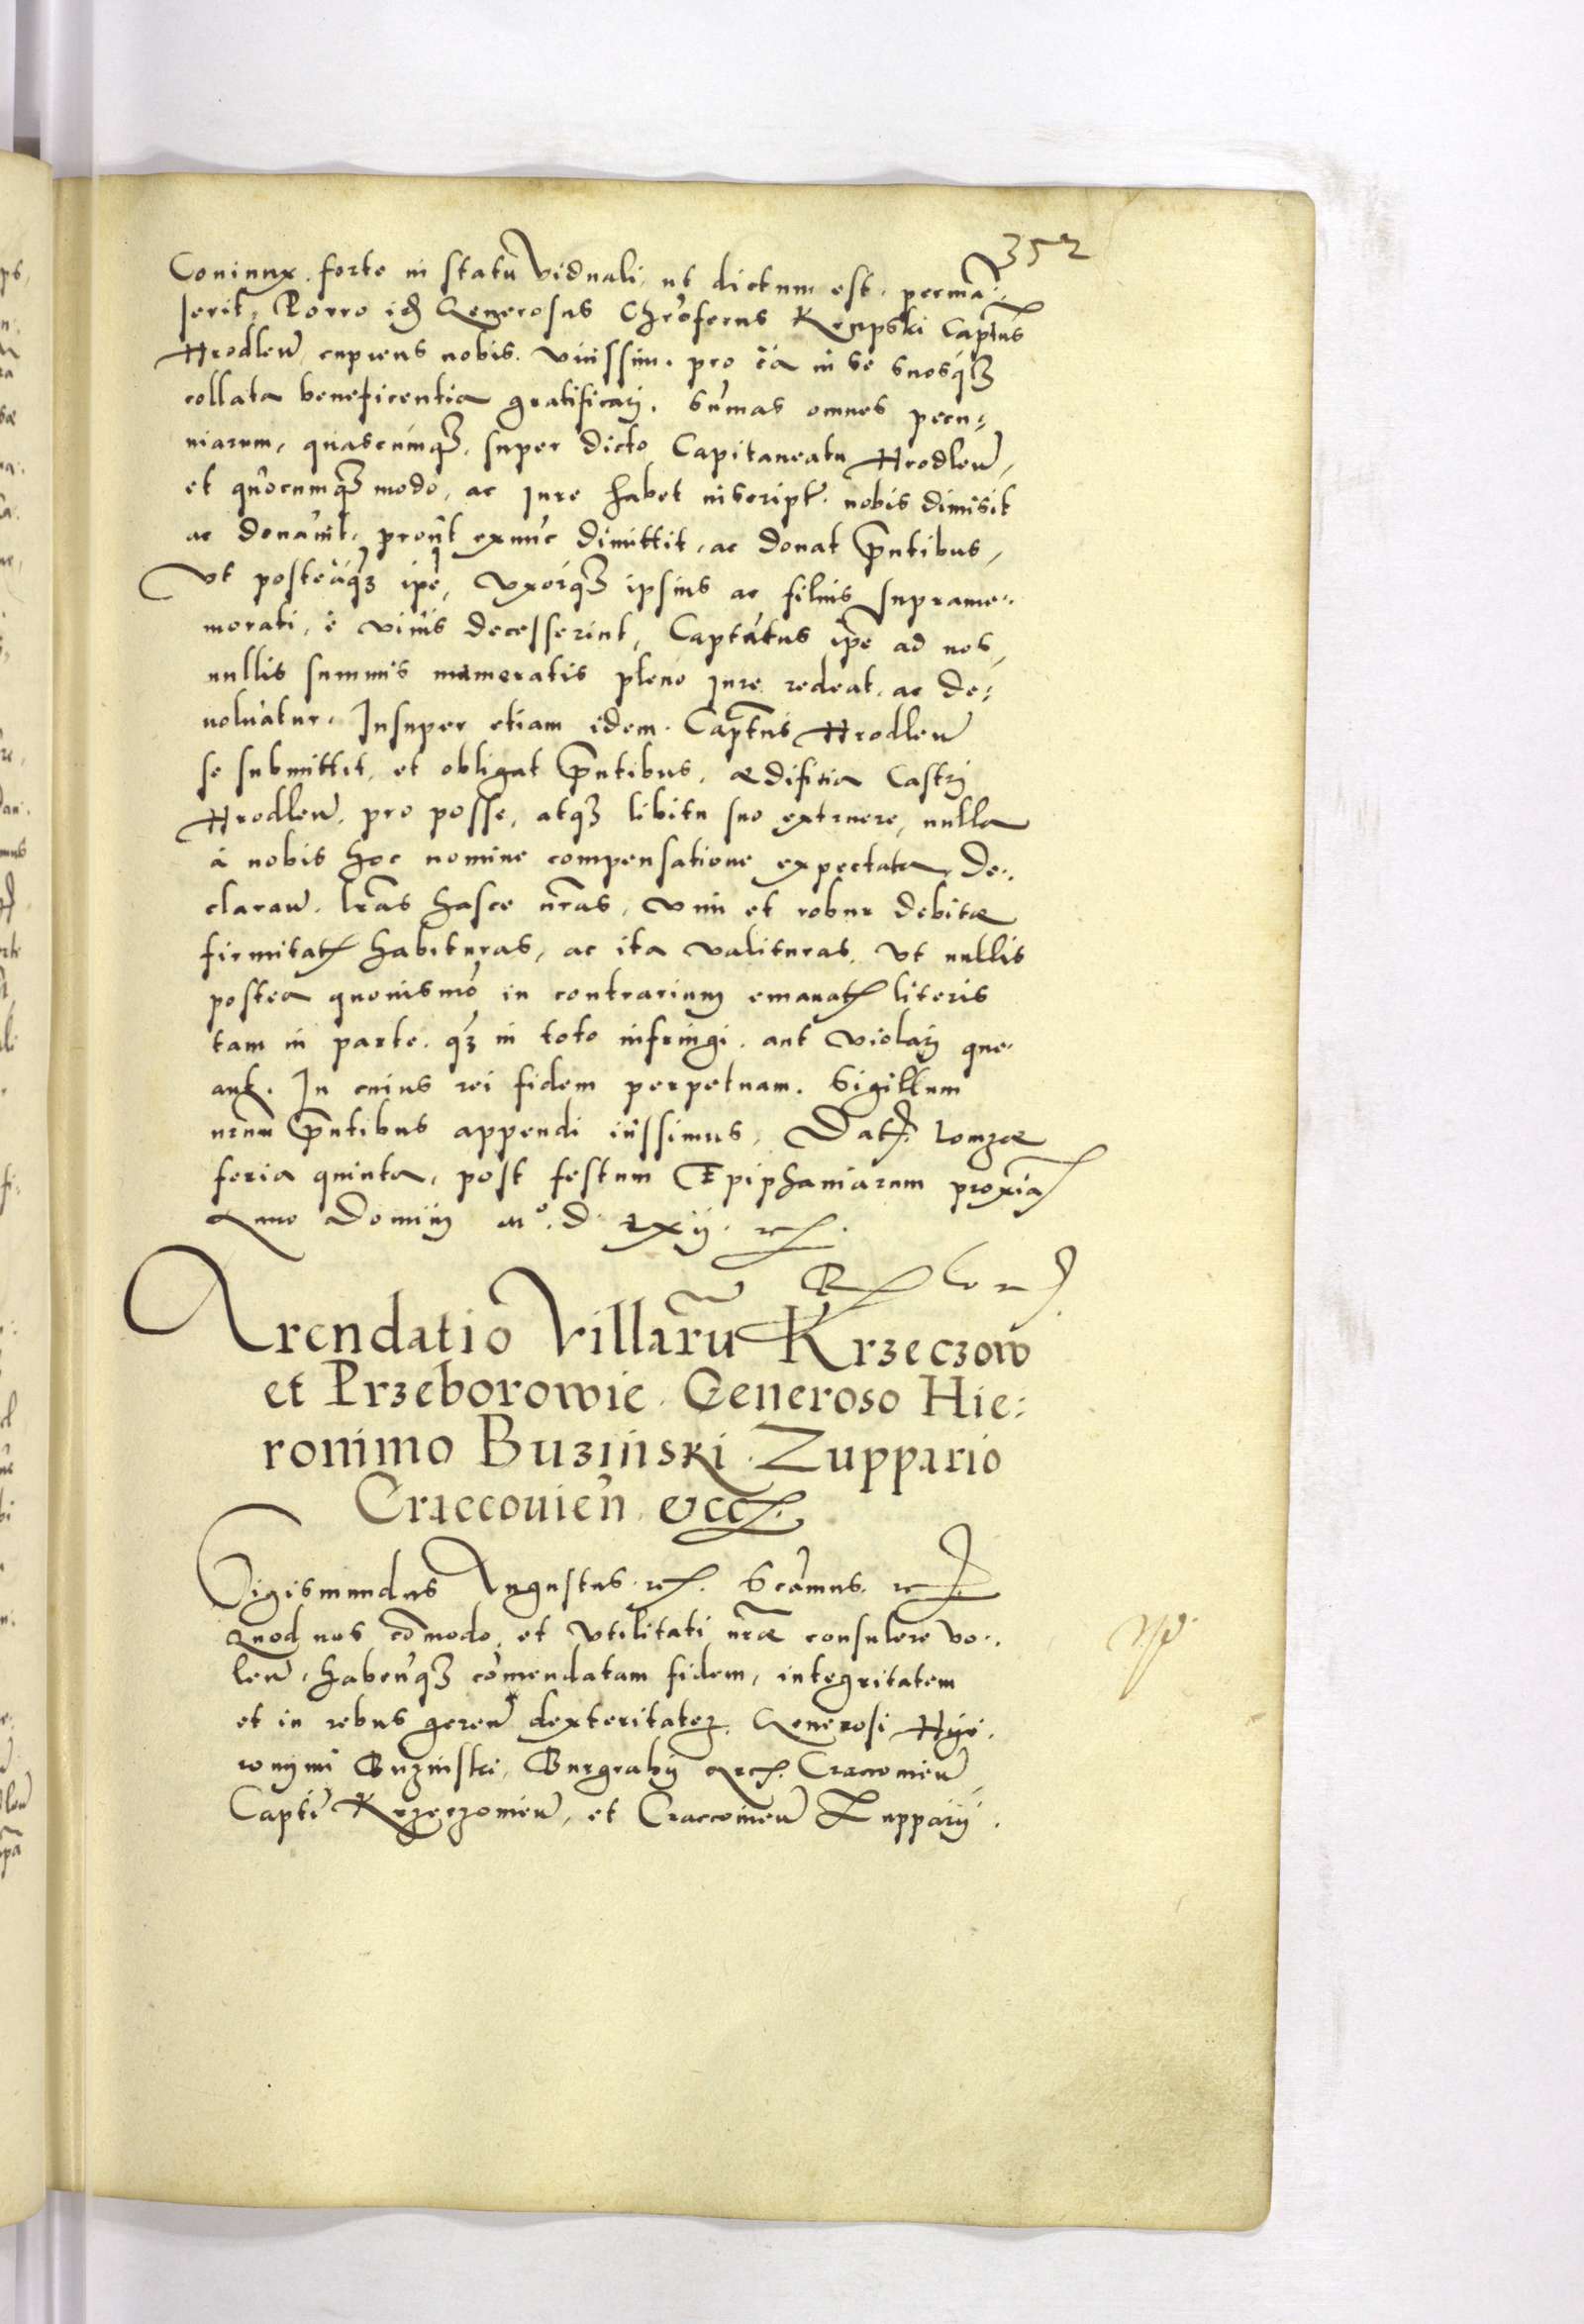 352
Coniunx forte in statu viduali, ut dictum est, perman¬
serit, Porro idem Generosus Chrõferus Krupski Captũs
Hrodlen̄ cupiens nobis vicissim, pro ea in se suosq3
collata beneficentia gratificarj, Sũmas omnes pecu¬
niarum, quascunq3 super dicto Capitaneatu Hrodlen̄,
et quocumq3 modo, ac jure habet inscript. nobis dimisit
ac donauit, prout exnũc dimittit, ac donat pñtibus,
Vt posteaq3 ipe, Vxorq3 ipsius ac filius suprame¬
morati, è viuis decesserint, Captatus ipe ad nos,
nullis summis numeratis pleno jure redeat, ac de¬
uoluatur. Insuper etiam idem Captñus Hrodlen̄
se submittit, et obligat pñtibus, ædificia Castrj
Hrodlen̄, pro posse, atq3 libitu suo extruere, nulla
à nobis hoc nomine compensatione expectata, de¬
claran̄. lr̃as hasce nr̃as, vim et robur debitæ
firmitatis habituras, ac ita valituras, Vt nullis
postea quouismõ in contrarium emanatis literis
tam in parte, q3 in toto infringi, aut violarj que¬
ant. In cuius rei fidem perpetuam, Sigillum
nr̃um pñtibus appendi iussimus, Dat. Lomzæ
feria quinta, post festum Epiphaniarum proxia
Anno Dominj Mº. D. LXij. etc.
Arendatio Villarũ Krzeczow
et Przeborowie Generoso Hie:
ronimo Buzinski Zuppario
Craccouieñ &cc.
Sigismundus Augustus etc. Scãmus etc.
Quod nos cõmodo, et Vtilitati nr̃æ consulere vo¬
len̄, habenq3 cõmendatam fidem, integritatem
et in rebus geren̄ dexteritatem, Generosi Hye¬
ronymi Buzinski, Burgrabij Arcis Craccouien̄,
Captĩ Krzeczouien̄, et Craccouien̄ Zupparij.